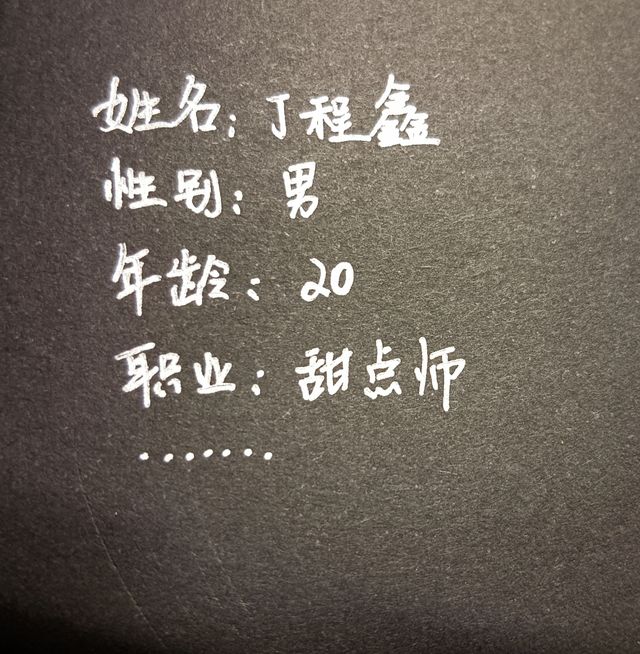 姓名:丁程鑫
性别:男
年龄:20
职业:甜点师
.......